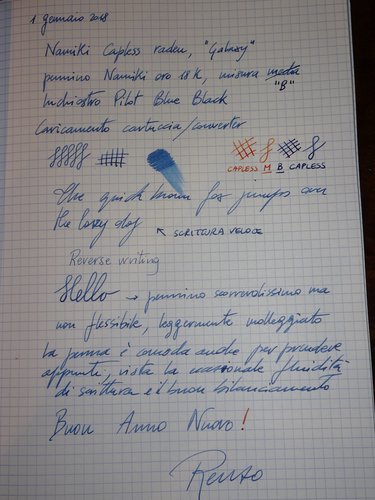 1 gennaio 2018
Namiki Capless raden, "Galaxy"
pennino Namiki oro 18K, misura media
"B"
Inchiostro Pilot Blue Black
Caricamento cartuccia/converter
CAPLESS M B CAPLESS
The quick brown fox jumps over
the lazy dog
↖ SCRITTURA VELOCE
Reverse writing
Hello → pennino scorrevolissimo ma
non flessibile, leggermente molleggiato
La penna è comoda anche per prendere
appunti, vista la eccezionale fluidità
di scrittura e il buon bilanciamento
Buon Anno Nuovo!
Renzo